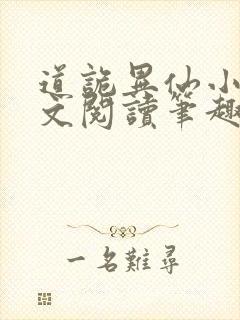 道詭異仙小
文閱讀筆趣
一名難尋